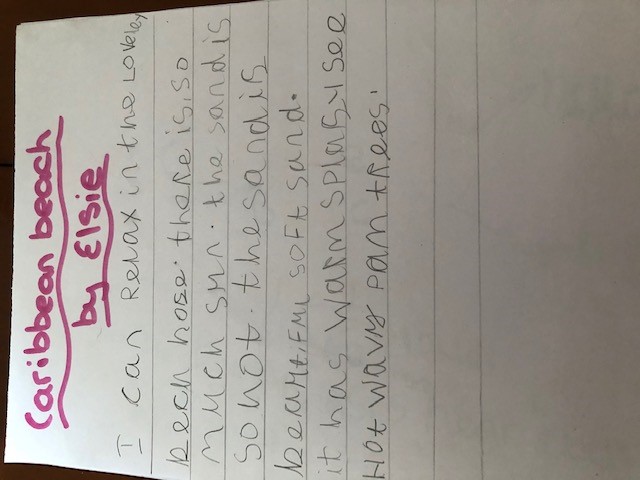 Caribbean beach
by Elsie
I can Relax in the Loveley
bech hose. there is so
much sun. the sand is
so hot. the sand is
beautiful soft sand.
it has warm splashy see
Hot wavy pam trees.